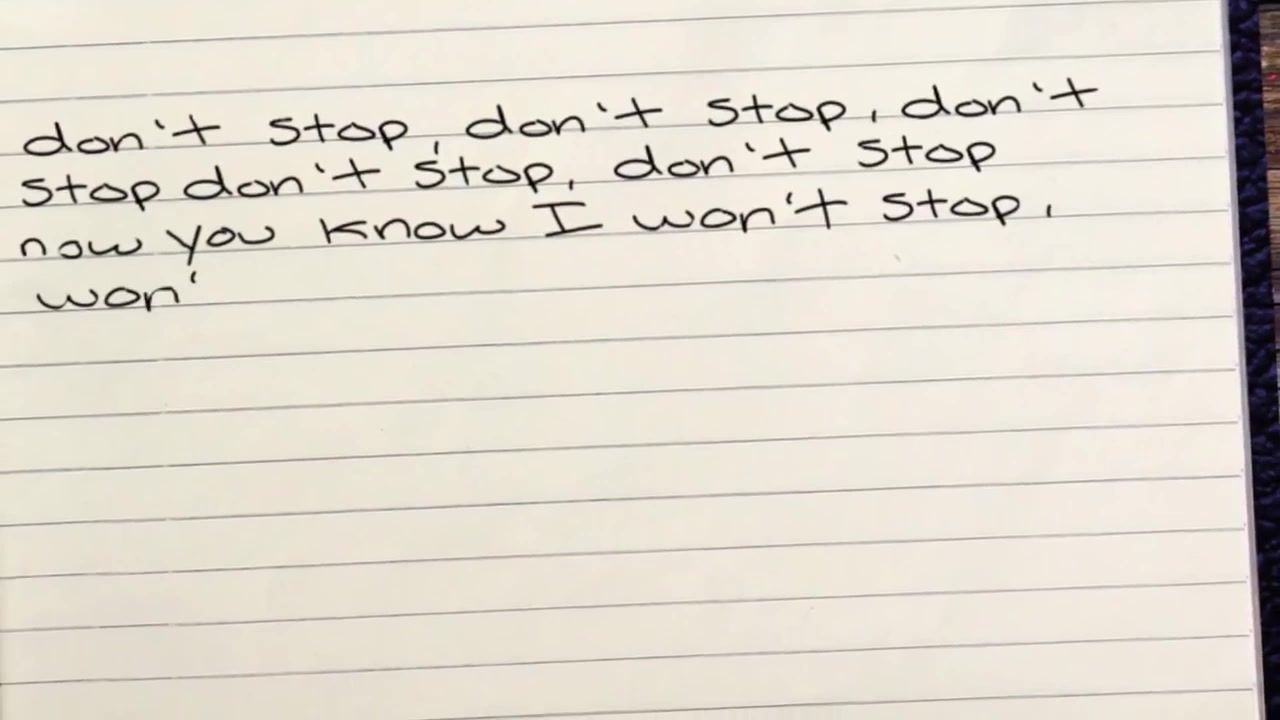 don't stop, don't stop, don't
stop don't stop, don't stop
now you know I won't stop,
won'